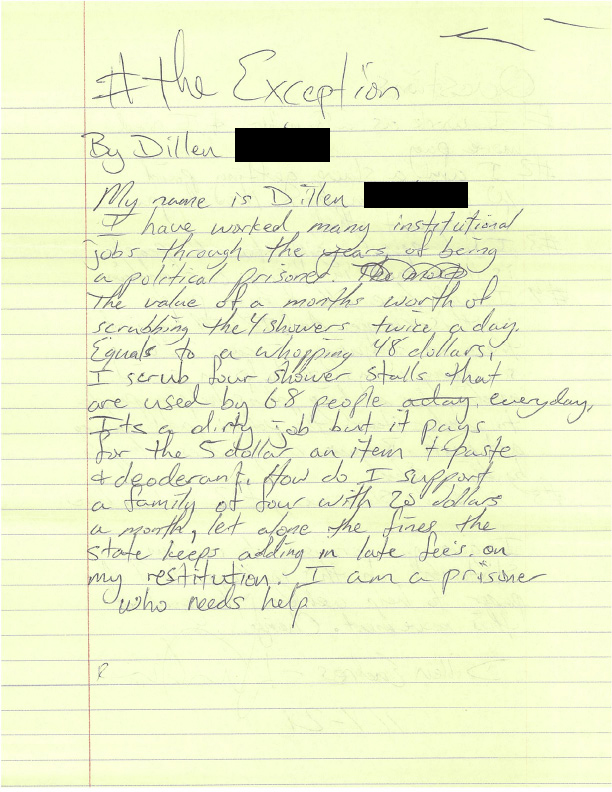 #the Exception
By Dillen
My name is Dillen
I have worked many institutional
jobs through the years of being
a political prisoner.
The value of a months worth of
scrubbing the 4 showers twice a day.
Equals to a whopping 48 dollars.
I scrub four shower stalls that
are used by 68 people aday everyday.
Its a dirty job but it pays
for the 5 dollar an item t-paste
& deoderant. How do I support
a family of four with 20 dollars
a month, let alone the fines the
state keeps adding in late fee's. on
my restitution. I am a prisoner
who needs help